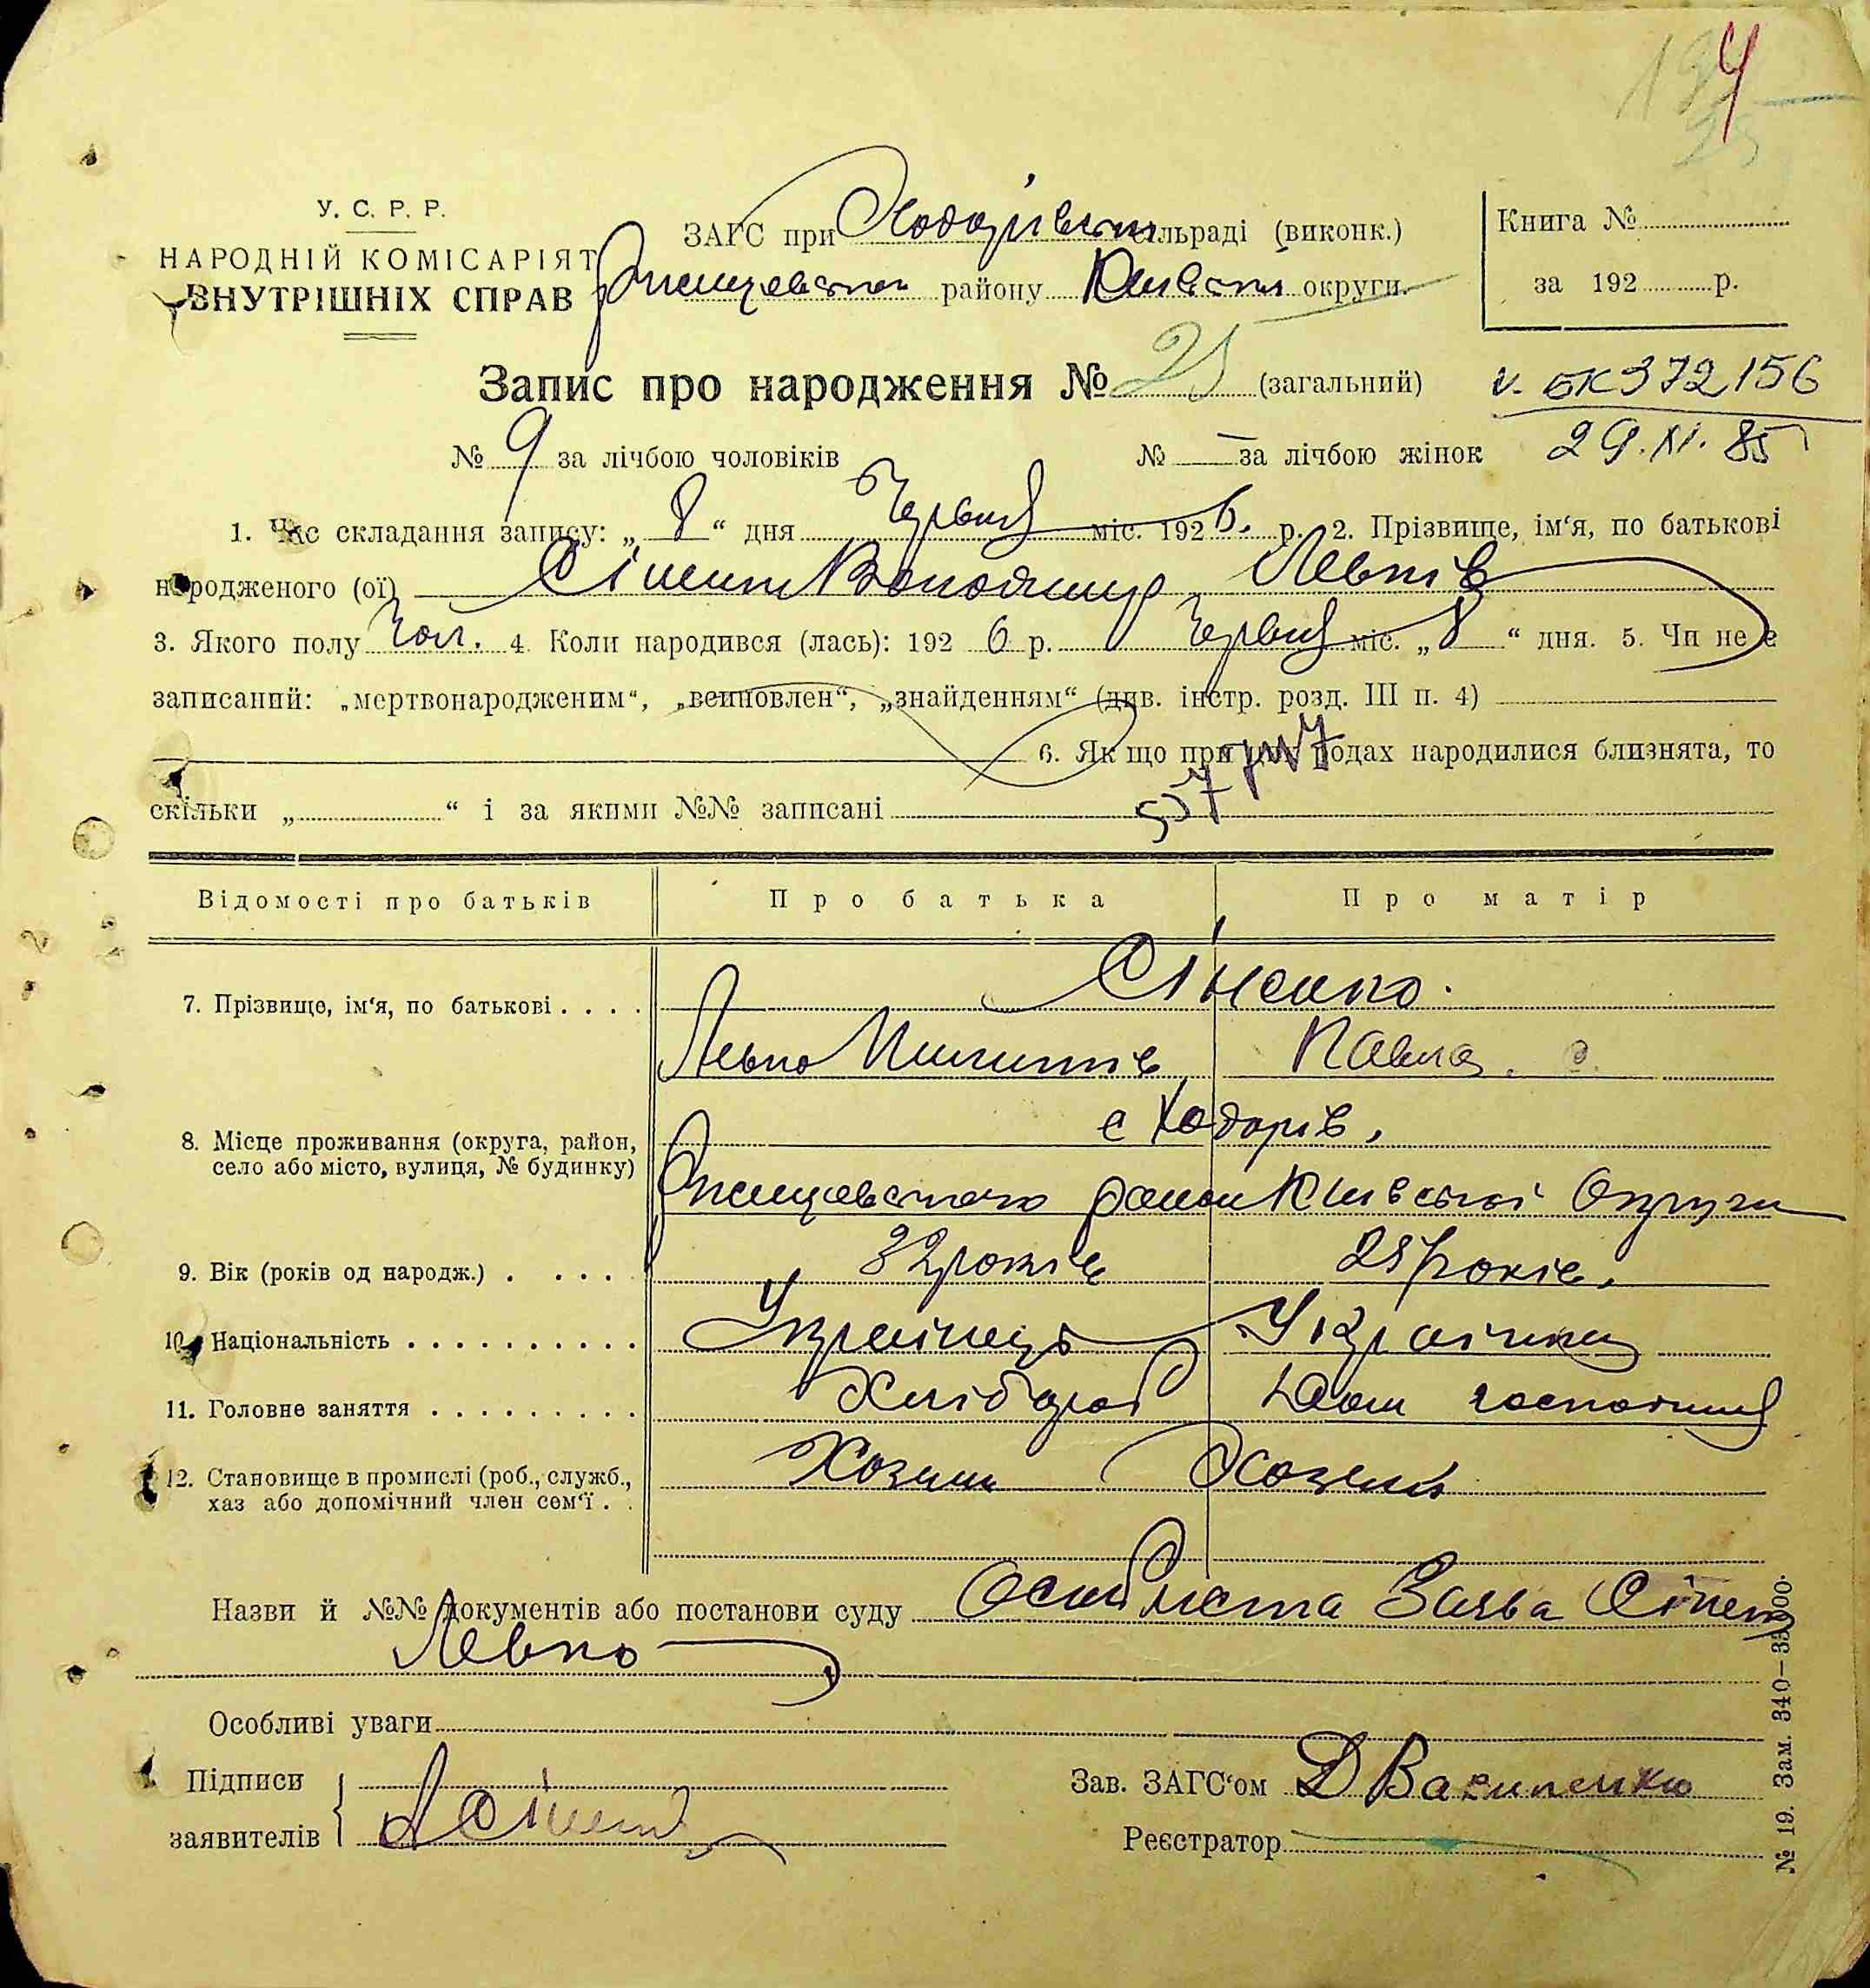 4
У. С. Р. Р.
НАРОДНІЙ КОМІСАРІЯТ
ВНУТРІШНІХ СПРАВ
ЗАГС при Ходорівськ сільраді (виконк.)
Ржищевськ району Київськ округи.
Книга №
за 192 р.
Запис про народження № 25 (загальний)
v. БК 372156
№ 9 за лічбою чоловіків № — за лічбою жінок
29.XI.85
1. Час складання запису: „ 8 “ дня Червня міс. 1926. р. 2. Прізвище, ім‘я, по батькові
народженого (ої) Сіненко Володимир Левків
3. Якого полу Чол. 4. Коли народився (лась): 192 6 р. Червня міс. „ 8 “ дня. 5. Чи не є
записаний: „мертвонародженим“, „всиновлен“, „знайденням“ (див. інстр. розд. III п. 4)
6. Як що при цих родах народилися близнята, то
скільки „ “ і за якими №№ записані
Відомості про батьків
Про батька
Про матір
7. Прізвище, ім‘я, по батькові
Сіненко.
Левко Микитів
Павла.
8. Місце проживання (округа, район,
село або місто, вулиця, № будинку)
с Ходорів,
Ржищевського району Київської Округи
9. Вік (років од народж.)
32 років
28 років.
10. Національність
Українець
Українка
11. Головне заняття
Хлібороб
Дом господиня
12. Становище в промислі (роб., служб.,
хаз або допомічний член сем‘ї
Хозяин
Хозяйк
Назви й №№ документів або постанови суду Особиста Заява Сіненка
Левко
Особливі уваги
Підписи
заявителів
Л Сіненко
Зав. ЗАГС‘ом Д Василенко
Реєстратор
№ 19. Зам. 340—33000.